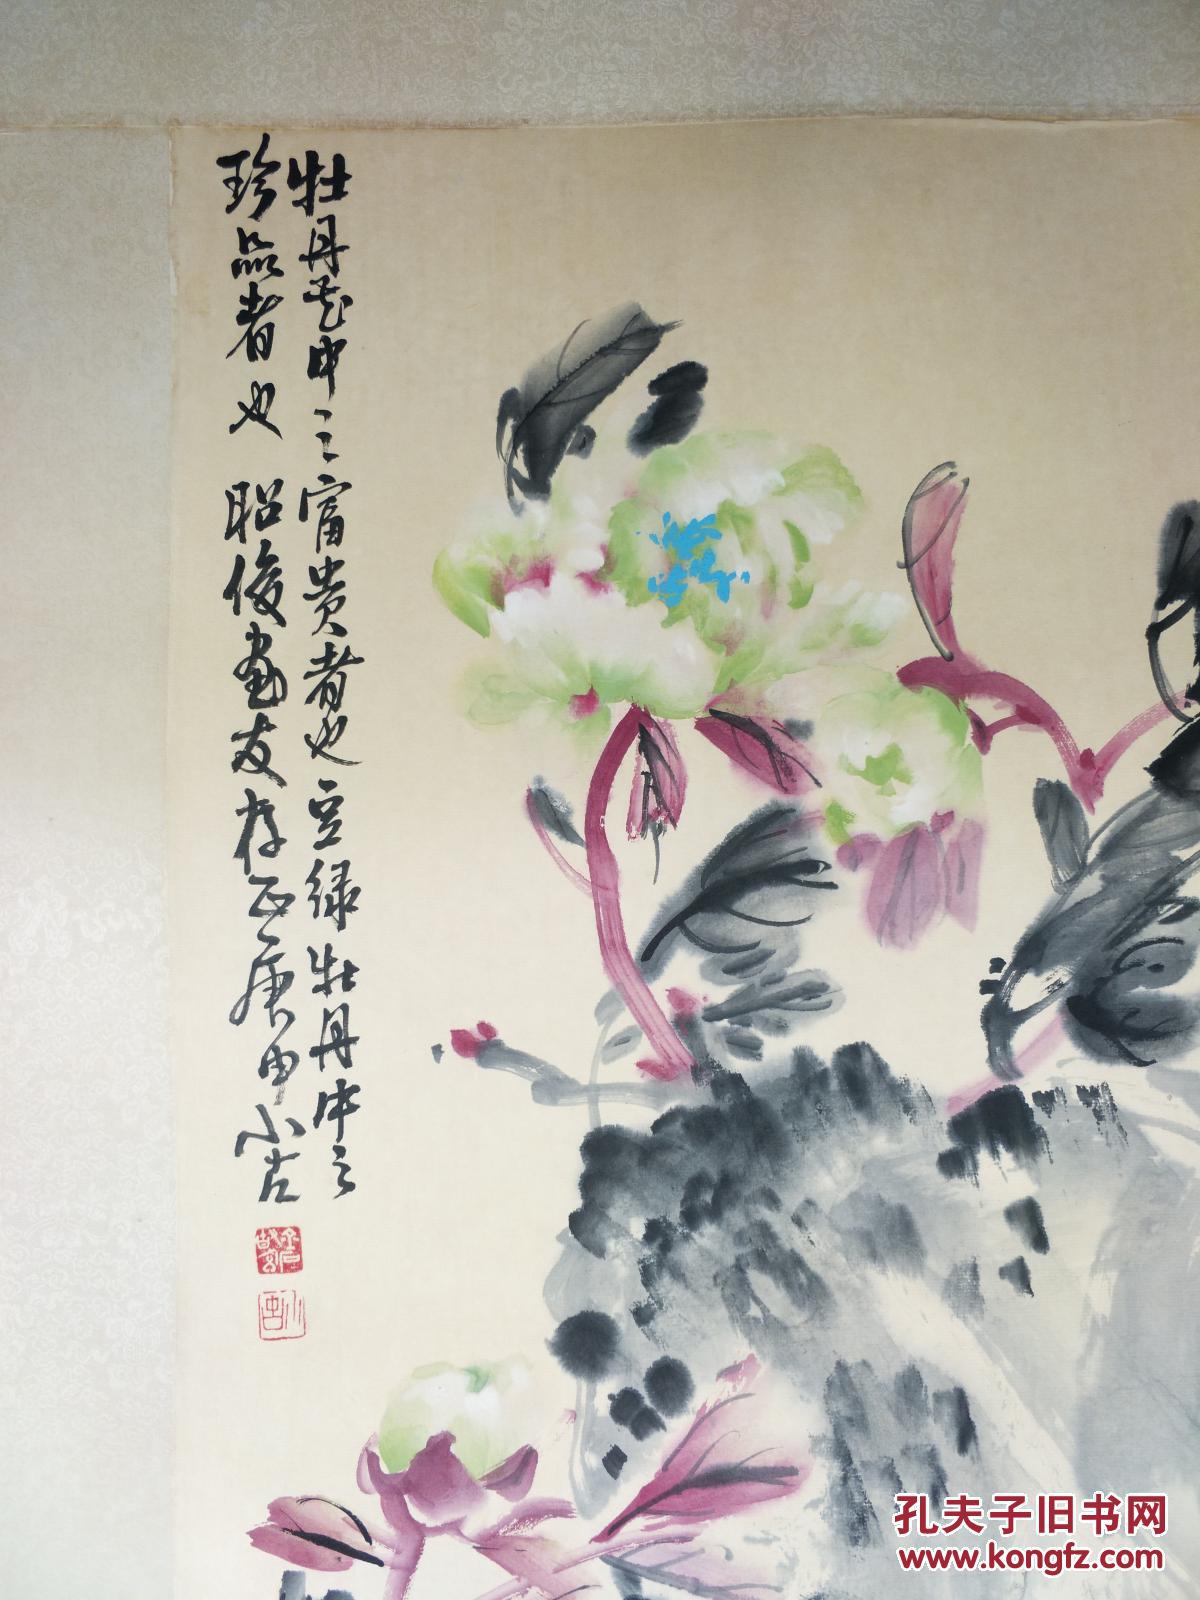 牡丹花中之富贵者也豆绿牡丹中之
珍品者也 昭俊画友存正庚申小古
孔夫子旧书网
www.kongfz.com